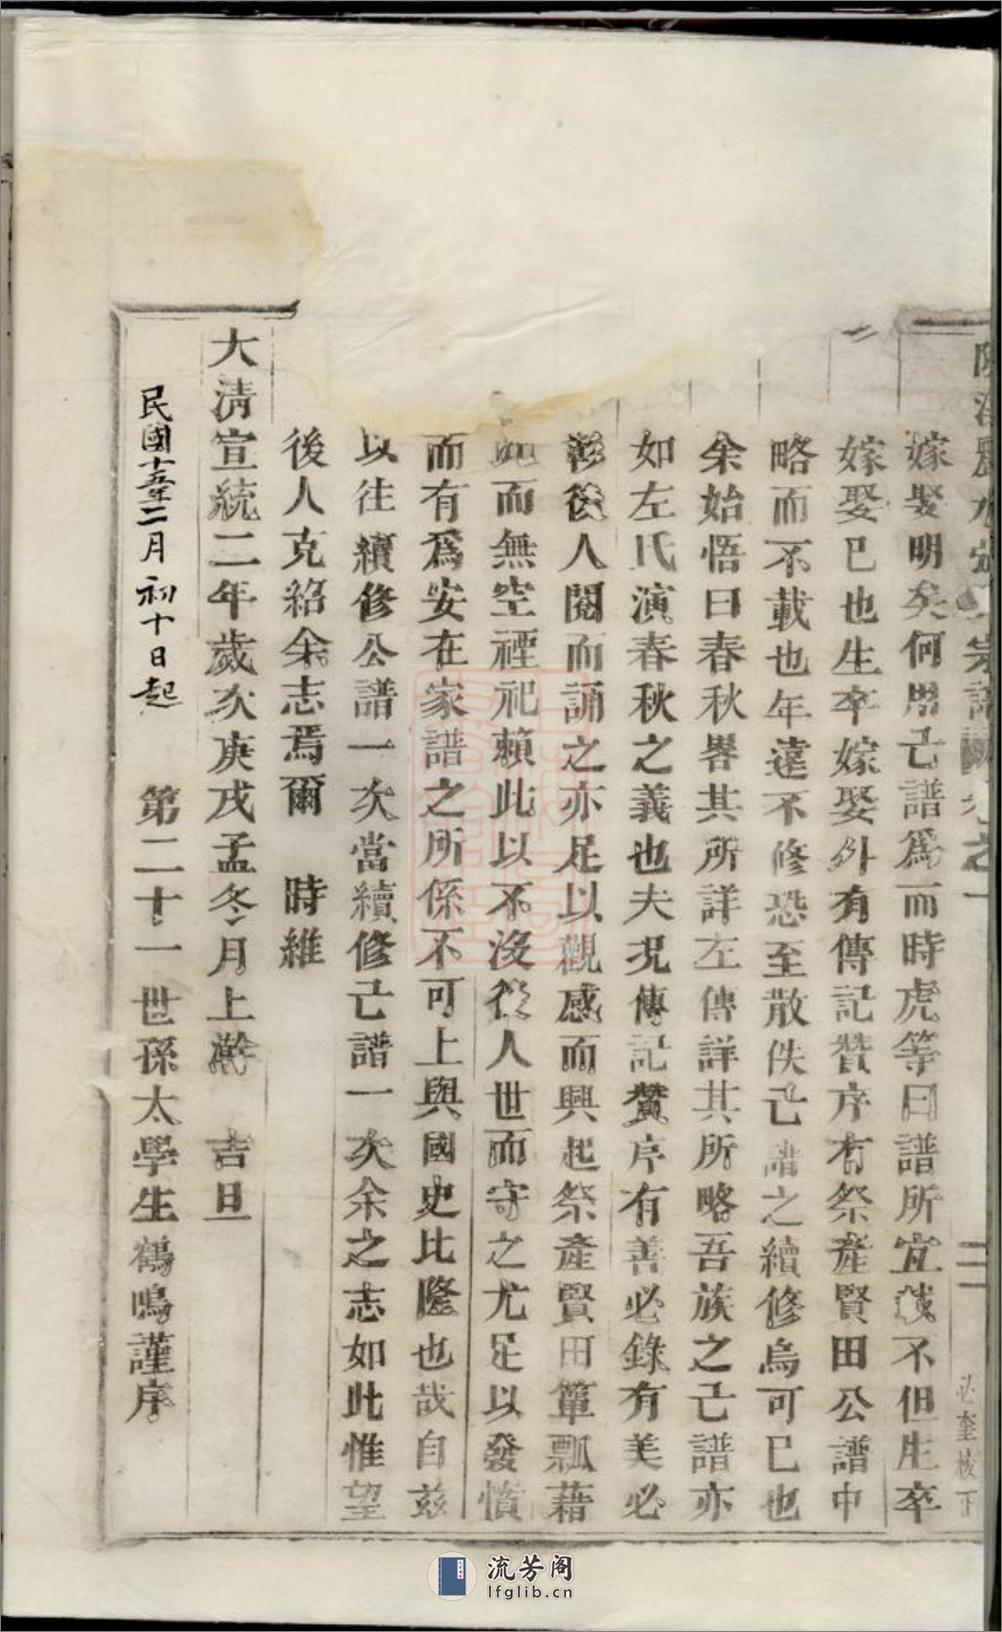 宗譜
之一
二
必奎校下
嫁娶明矣何用己譜爲而時虎等曰譜所宜
不但生卒
嫁娶已也生卒嫁娶外有傳記贊序有祭產賢田公譜中
略而不載也年遠不修恐至散佚己譜之續修烏可已也
余始悟曰春秋畧其所詳左傳詳其所略吾族之己譜亦
如左氏演春秋之義也夫況傳記贊序有善必錄有美必
彰後人閱而誦之亦足以觀感而興起祭產賢田簞瓢藉
此而無空禋祀賴此以不沒後人世而守之尤足以發憤
而有爲安在家譜之所係不可上與國史比隆也哉自茲
以往續修公譜一次當續修己譜一次余之志如此惟望
後人克紹余志焉爾　時維
大清宣統二年歲次庚戌孟冬月上澣　吉旦
民國十五年二月初十日起　第二十一世孫太學生鶴鳴謹序
流芳阁
lfglib.cn